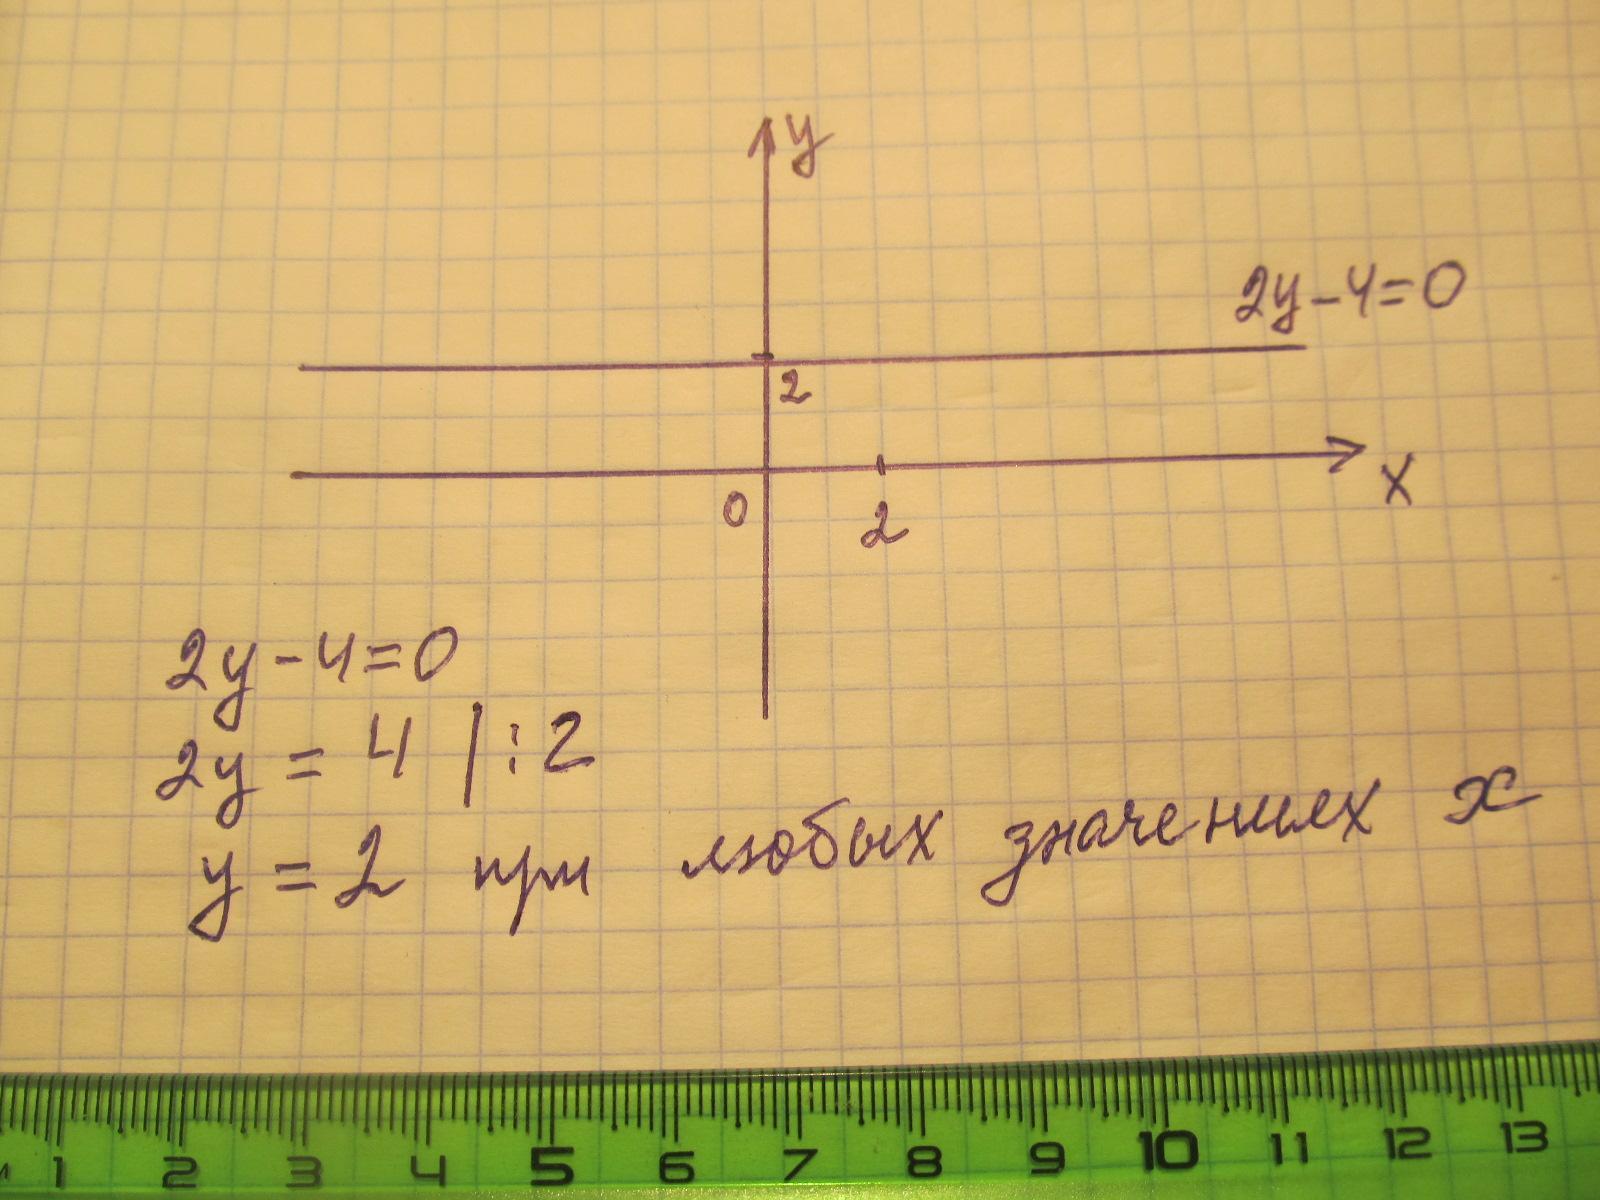 y
2y-4=0
2
x
0
2
2y-4=0
2y = 4 |:2
y = 2 при любых значениях x
1 2 3 4 5 6 7 8 9 10 11 12 13